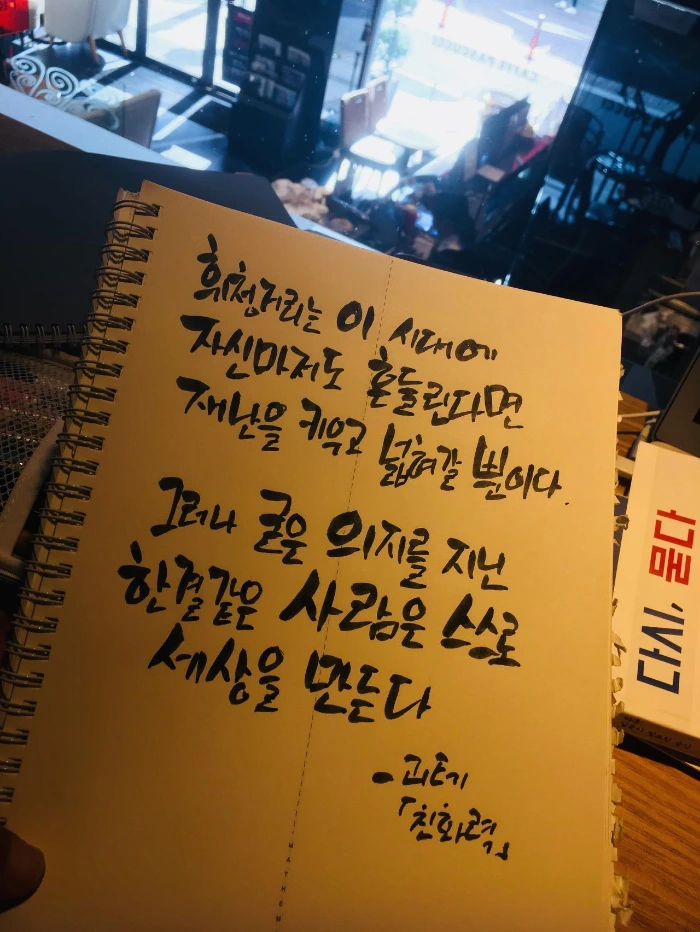 휘청거리는 이 시대에
자신마저도 흔들린다면
재난을 키우고 넓혀갈 뿐이다.
그러나 굳은 의지를 지닌
한결같은 사람은 스스로
세상을 만든다
- 괴테
「친화력」
다시, 묻다
CAFFE PASCUCCI
MATHEM